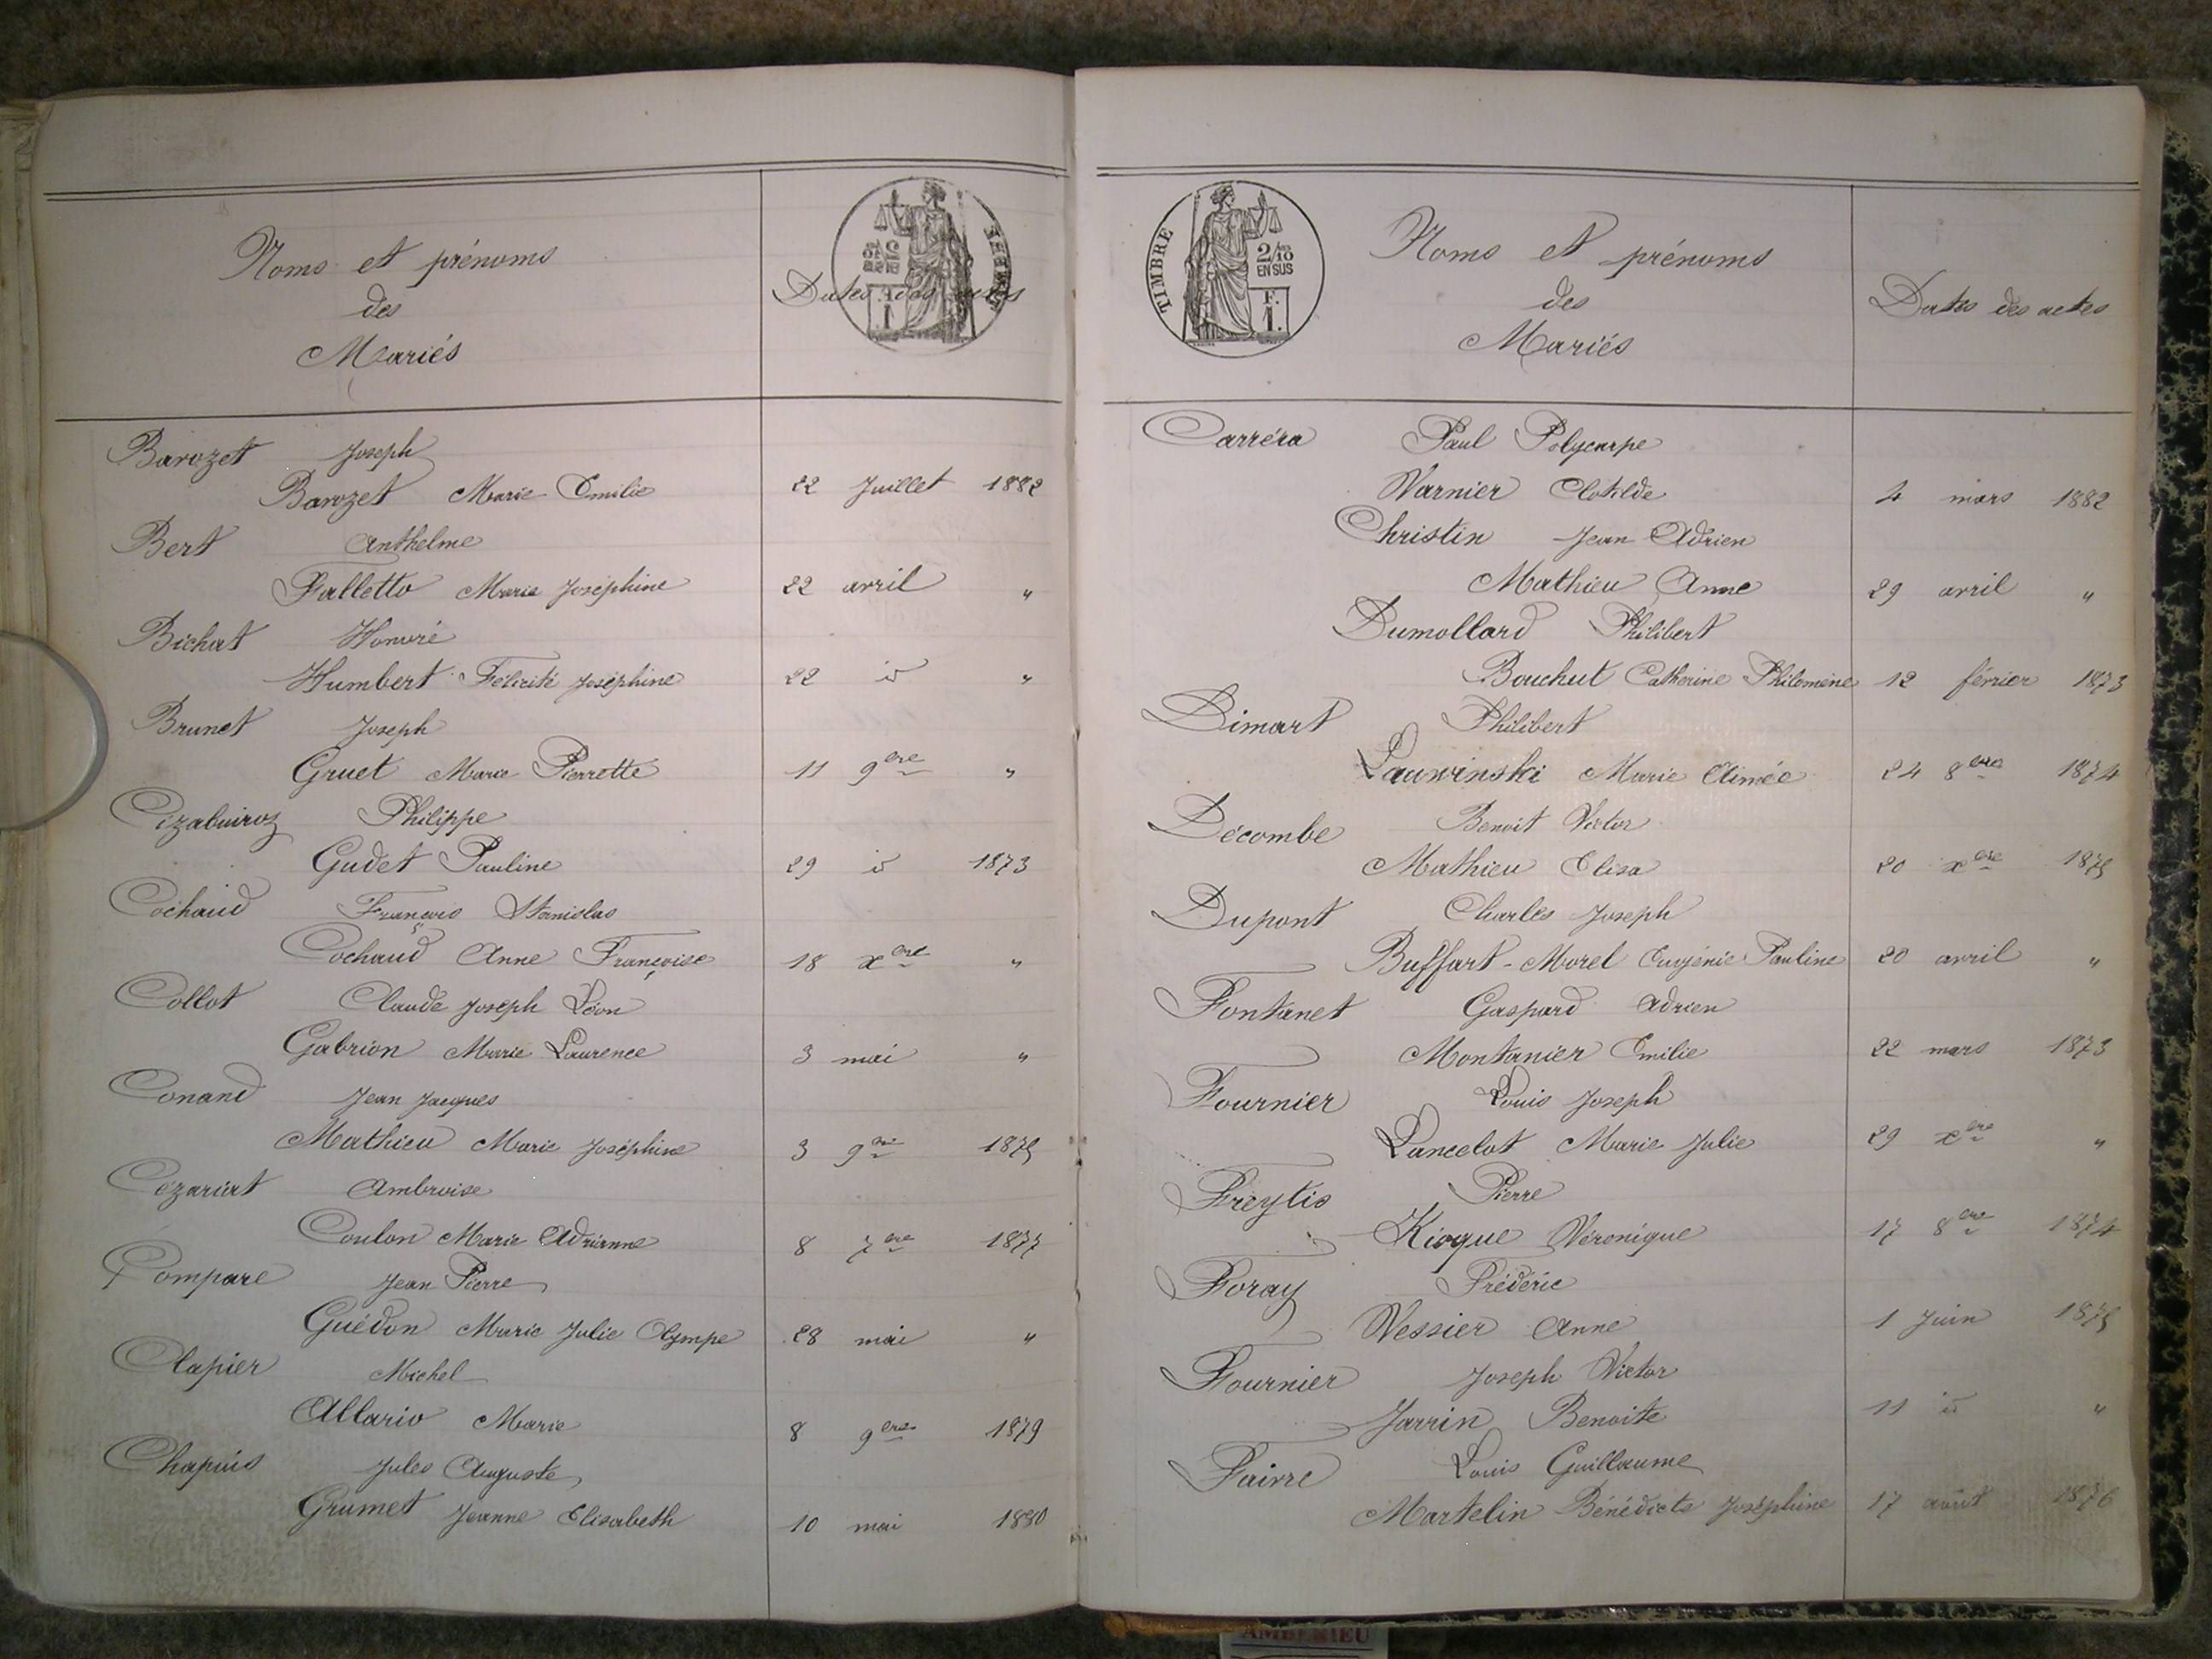 Noms et prénoms
des
Mariés
Dates des actes
Barozet Joseph
Barozet Marie Emilie 22 Juillet 1882
Bert Anthelme
Falletto Marie Joséphine 22 avril "
Bichat Honoré
Humbert Félicité Joséphine 22 id "
Brunet Joseph
Gruet Marie Pierrette 11 9bre "
Philippe
Gudet Pauline 29 id 1873
Cochaud François Stanislas
Cochaud Anne Françoise 18 xbre "
Collot Claude Joseph Léon
Gabrion Marie Laurence 3 mai "
Conand Jean Jacques
Mathieu Marie Joséphine 3 9bre 1875
Cézariat Ambroise
Coulon Marie Adrianne 8 7bre 1877
Compare Jean Pierre
Guédon Marie Julie Olympe 28 mai "
Clapier Michel
Allario Marie 8 9bre 1879
Chapuis Jules Auguste
Grumet Jeanne Elisabeth 10 mai 1880
TIMBRE
2/10
EN SUS
F.
1.
Noms et prénoms
des
Mariés
Dates des actes
Carréra Paul Polycarpe
Warnier Clotilde 4 mars 1882
Christin Jean Adrien
Mathieu Anne 29 avril "
Dumollard Philibert
Bouchut Catherine Philomène 12 février 1873
Dimart Philibert
Lauwinski Marie Aimée 24 8bre 1874
Décombe Benoit Victor
Mathieu Elisa 20 xbre 1875
Dupont Charles Joseph
Buffart-Morel Eugénie Pauline 20 avril "
Fontanet Gaspard Adrien
Montanier Emilie 22 mars 1873
Fournier Louis Joseph
Lancelot Marie Julie 29 xbre "
Freytis Pierre
Kioque Véronique 17 8bre 1874
Foray Frédéric
Vessier Anne 1 Juin 1875
Fournier Joseph Victor
Jarrin Benoite 11 id "
Faivre Louis Guillaume
Martelin Bénédicte Joséphine 17 août 1876
AMBERIEU